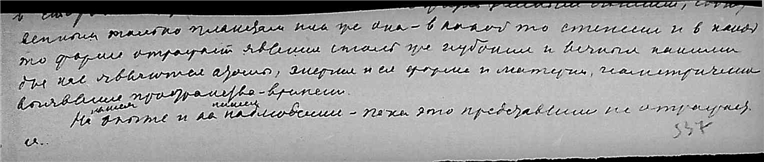 венных только планетам или же она - в какой то степени и в какой
то форме отражает явления столь же глубокие и вечные какими
для нас являются атомы, энергия и ея форма и материя, геометрически
выявление пространства-времени.
нашем нашем
На опыте и на наблюдении - пока это представление не отражается
и..
337